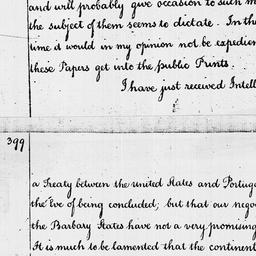 and will probably give occasion to such
the subject of them seems to dictate. In the
time it would in my opinion not be expedien
these Papers get into the public Prints.
I have just received Intell
399
a Treaty between the united States and Portuga
the Eve of being concluded; but that our nego
the Barbary States have not a very promising
It is much to be lamented that the continent